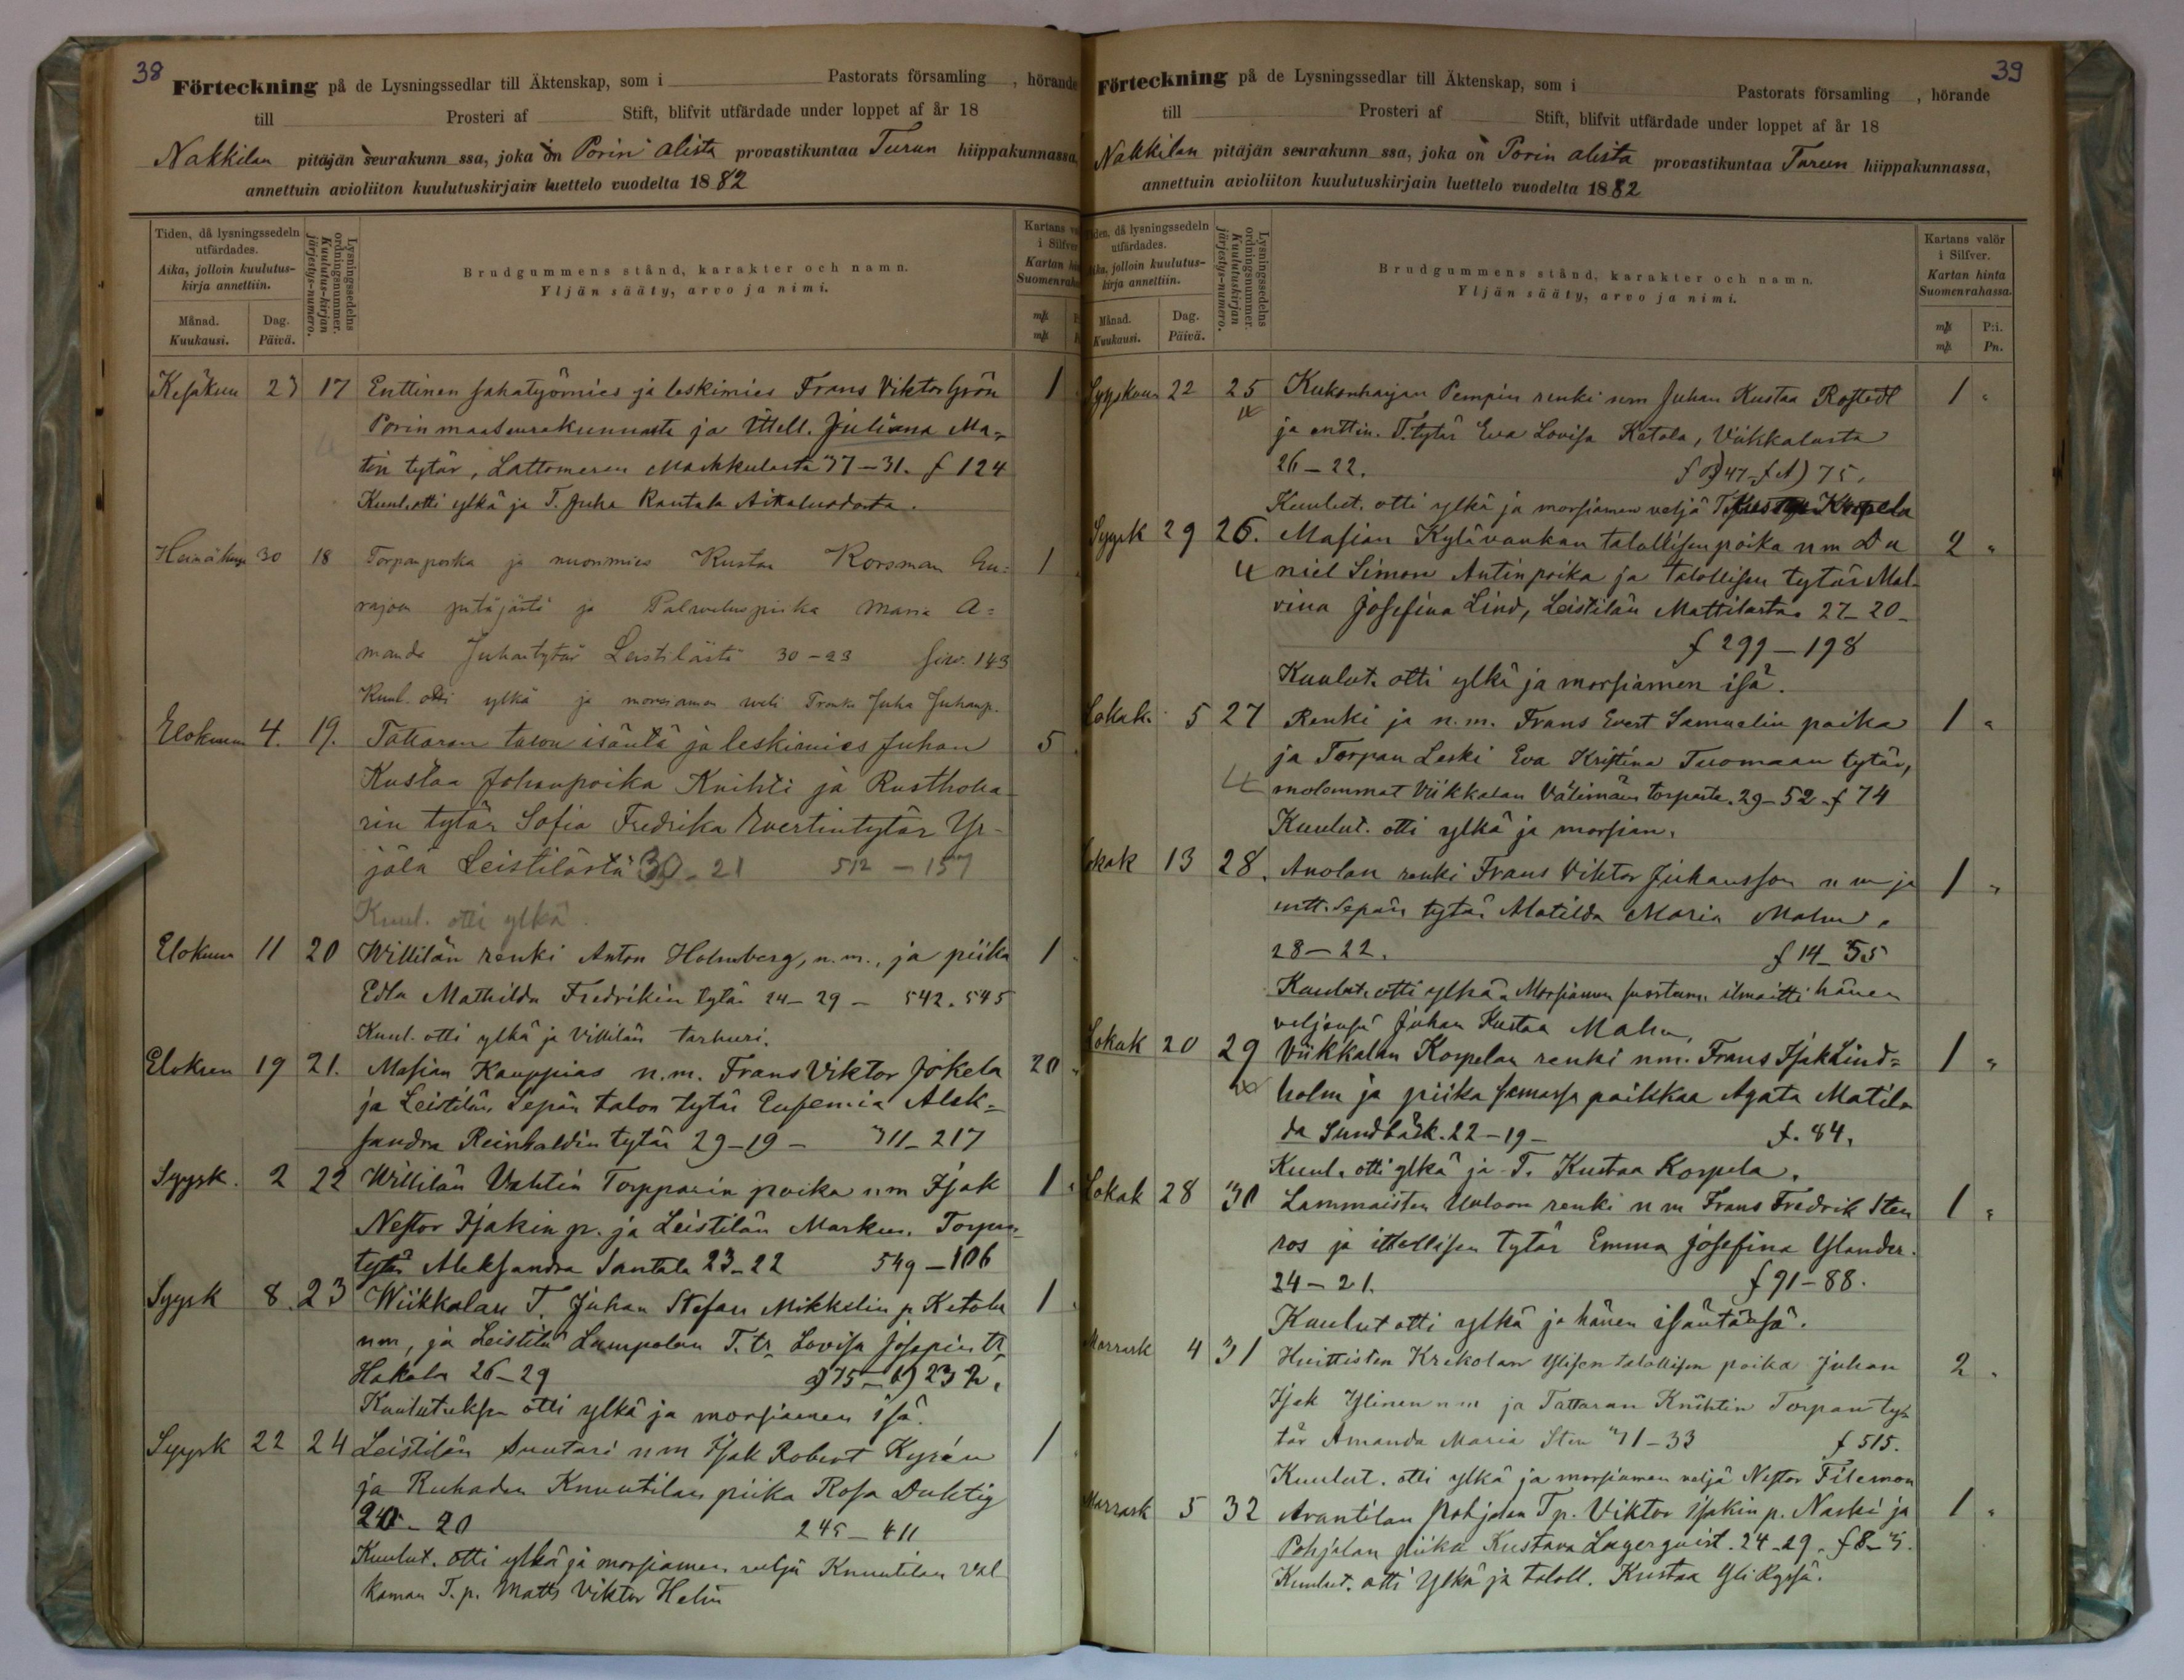 38
Förteckning på de Lysningssedlar till Äktenskap, som i Pastorats församling , hörande
till Prosteri af Stift, blifvit utfärdade under loppet af år 18
Nakkilan pitäjän seurakunn ssa, joka on Porin alista provastikuntaa Turun hiippakunnassa,
annettuin avioliiton kuulutuskirjain luettelo vuodelta 1882
Tiden, då lysningssedeln utfärdades.
Aika, jolloin kuulutus-kirja annettiin.
Månad. Kuukausi.
Dag. Päivä.
Lysningssedelns ordningsnummer.
Kuulutus-kirjan järjestys-numero.
Brudgummens stånd, karakter och namn.
Yljän sääty, arvo ja nimi.
Kesäkuu 23 17 Enttinen sahatyömies ja leskimies Frans Viktor Grön 1
Porin maaseurakunnasta ja ittell. Juliana Ma-
tin tytär, Lattomeren Markkulasta 37-31. f 124
Kuul. otti ylkä ja T. Juha Rautala
Heinäkuu 30 18 Torpanpoika ja nuorimies Kustaa Korsman Eu= 1
rajoen pitäjästä ja Palveluspiika Maria A=
manda Juhantytär Leistilästä 30-23 siv. 143
Kuul. otti ylkä ja morsiamen veli Juha Juhanp.
Elokuun 4. 19. Tattaran talon isäntä ja leskimies Juhan 5
Kustaa Johanpoika Knihti ja Rusthola-
rin tytär Sofia Fredrika Evertintytär Yr-
jälä Leistilästä 30-21 512-157
Kuul. otti ylkä.
Elokuun 11 20 Willilän renki Anton Holmberg, n.m., ja piika 1
Edla Mathilda Fredrikin tytär 24-29- 542. 545
Kuul. otti ylkä ja Villilän tarhuri.
Elokuun 19 21. Masian Kauppias n.m. Frans Viktor Jokela 20
ja Leistilän Sepän talon tytär Eufemia Alek=
sandra Reinholdin tytär 29-19- 311-217
Syysk. 2 22 Willilän Vahtin Torpparin poika nm Isak 1
Nestor Isakin p. ja Leistilän Markun. Torpan
tytär Aleksandra Santala 23-22 549-106
Syysk 8. 23 Wiikkalan T. Juhan Stefan Mikkelin p. Ketola 1
nm, ja Leistilä Lampolan T. tr. Lovisa Josepin tr.
Hakala 26-29 a) 75-b) 232.
Kuulutuksen otti ylkä ja morsiamen isä.
Syysk 22 24 Leistilän Suutari nm Isak Robert Kyrén 1
ja Ruhadan Knuutilan piika Rosa Duktig
20 245-411
Kuulut. otti ylkä ja morsiamen veljä Knuutilan Val
kaman T. p. Matts Viktor Helin
39
Förteckning på de Lysningssedlar till Äktenskap, som i Pastorats församling , hörande
till Prosteri af Stift, blifvit utfärdade under loppet af år 18
Nakkilan pitäjän seurakunn ssa, joka on Porin alista provastikuntaa Turun hiippakunnassa,
annettuin avioliiton kuulutuskirjain luettelo vuodelta 1882
Brudgummens stånd, karakter och namn.
Yljän sääty, arvo ja nimi.
Kartans valör i Silfver.
Kartan hinta Suomenrahassa.
P:i. Pn.
Syyskuu 22 25 Kukonharjan Pempin renki nm Juhan Kustaa Rostedt 1 "
ja enttin. T. tytär Eva Lovisa Ketola, Viikkalasta
26-22. 75.
Kuulut. otti ylkä ja morsiamen veljä Korpela
Syysk 29 26. Masian Kylävankan talollisen poika nm Da 2 "
niel Simon Antinpoika ja talollisen tytär Mal-
vina Josefina Lind, Leistilän Mattilasta 27-20-
f 299-198
Kuulut. otti ylkä ja morsiamen isä.
Lokak. 5 27 Renki ja n.m. Frans Evert Samuelin poika 1 "
ja Torpan Leski Eva Kristina Tuomaan tytär,
molemmat Viikkalan Välimäen torpasta. 29-52-f 74
Kuulut. otti ylkä ja morsian.
Lokak 13 28. Anolan renki Frans Viktor Juhansson nm ja 1 "
entt. Sepän tytär Matilda Maria Malm.
28-22. f 14-55
Kuulut. otti ylkä. Morsiamen ilmoitti hänen
veljensä Juhan Kustaa Malm,
Lokak 20 29 Viikkalan Korpelan renki nm. Frans Isak Lind= 1 "
holm ja piika samassa paikkaa Agata Matil-
da Sundbäck. 22-19- f. 84.
Kuul. otti ylkä ja T. Kustaa Korpela.
Lokak 28 30 Lammaisten renki nm Frans Fredrik Sten 1 "
ros ja ittellisen tytär Emma Josefina Ylander.
24-21. f 91-88.
Kuulut otti ylkä ja hänen isäntänsä.
Marrask 4 31 Huittisten Krekolan Ylisen talollisen poika Juhan 2 "
Isak Ylinen nm ja Tattaran Knihtin Torpan ty-
tär Amanda Maria Sten 31-33 f 515.
Kuulut. otti ylkä ja morsiamen veljä Nestor Filemon
Marrask 5 32 Arantilan Pohjolan T p. Viktor Isakin p. Naski ja 1 "
Pohjalan piika Kustava Lagerqvist. 24-29-f 8-3.
Kuulut. otti Ylkä ja taloll. Kustaa Yli Ryssä.